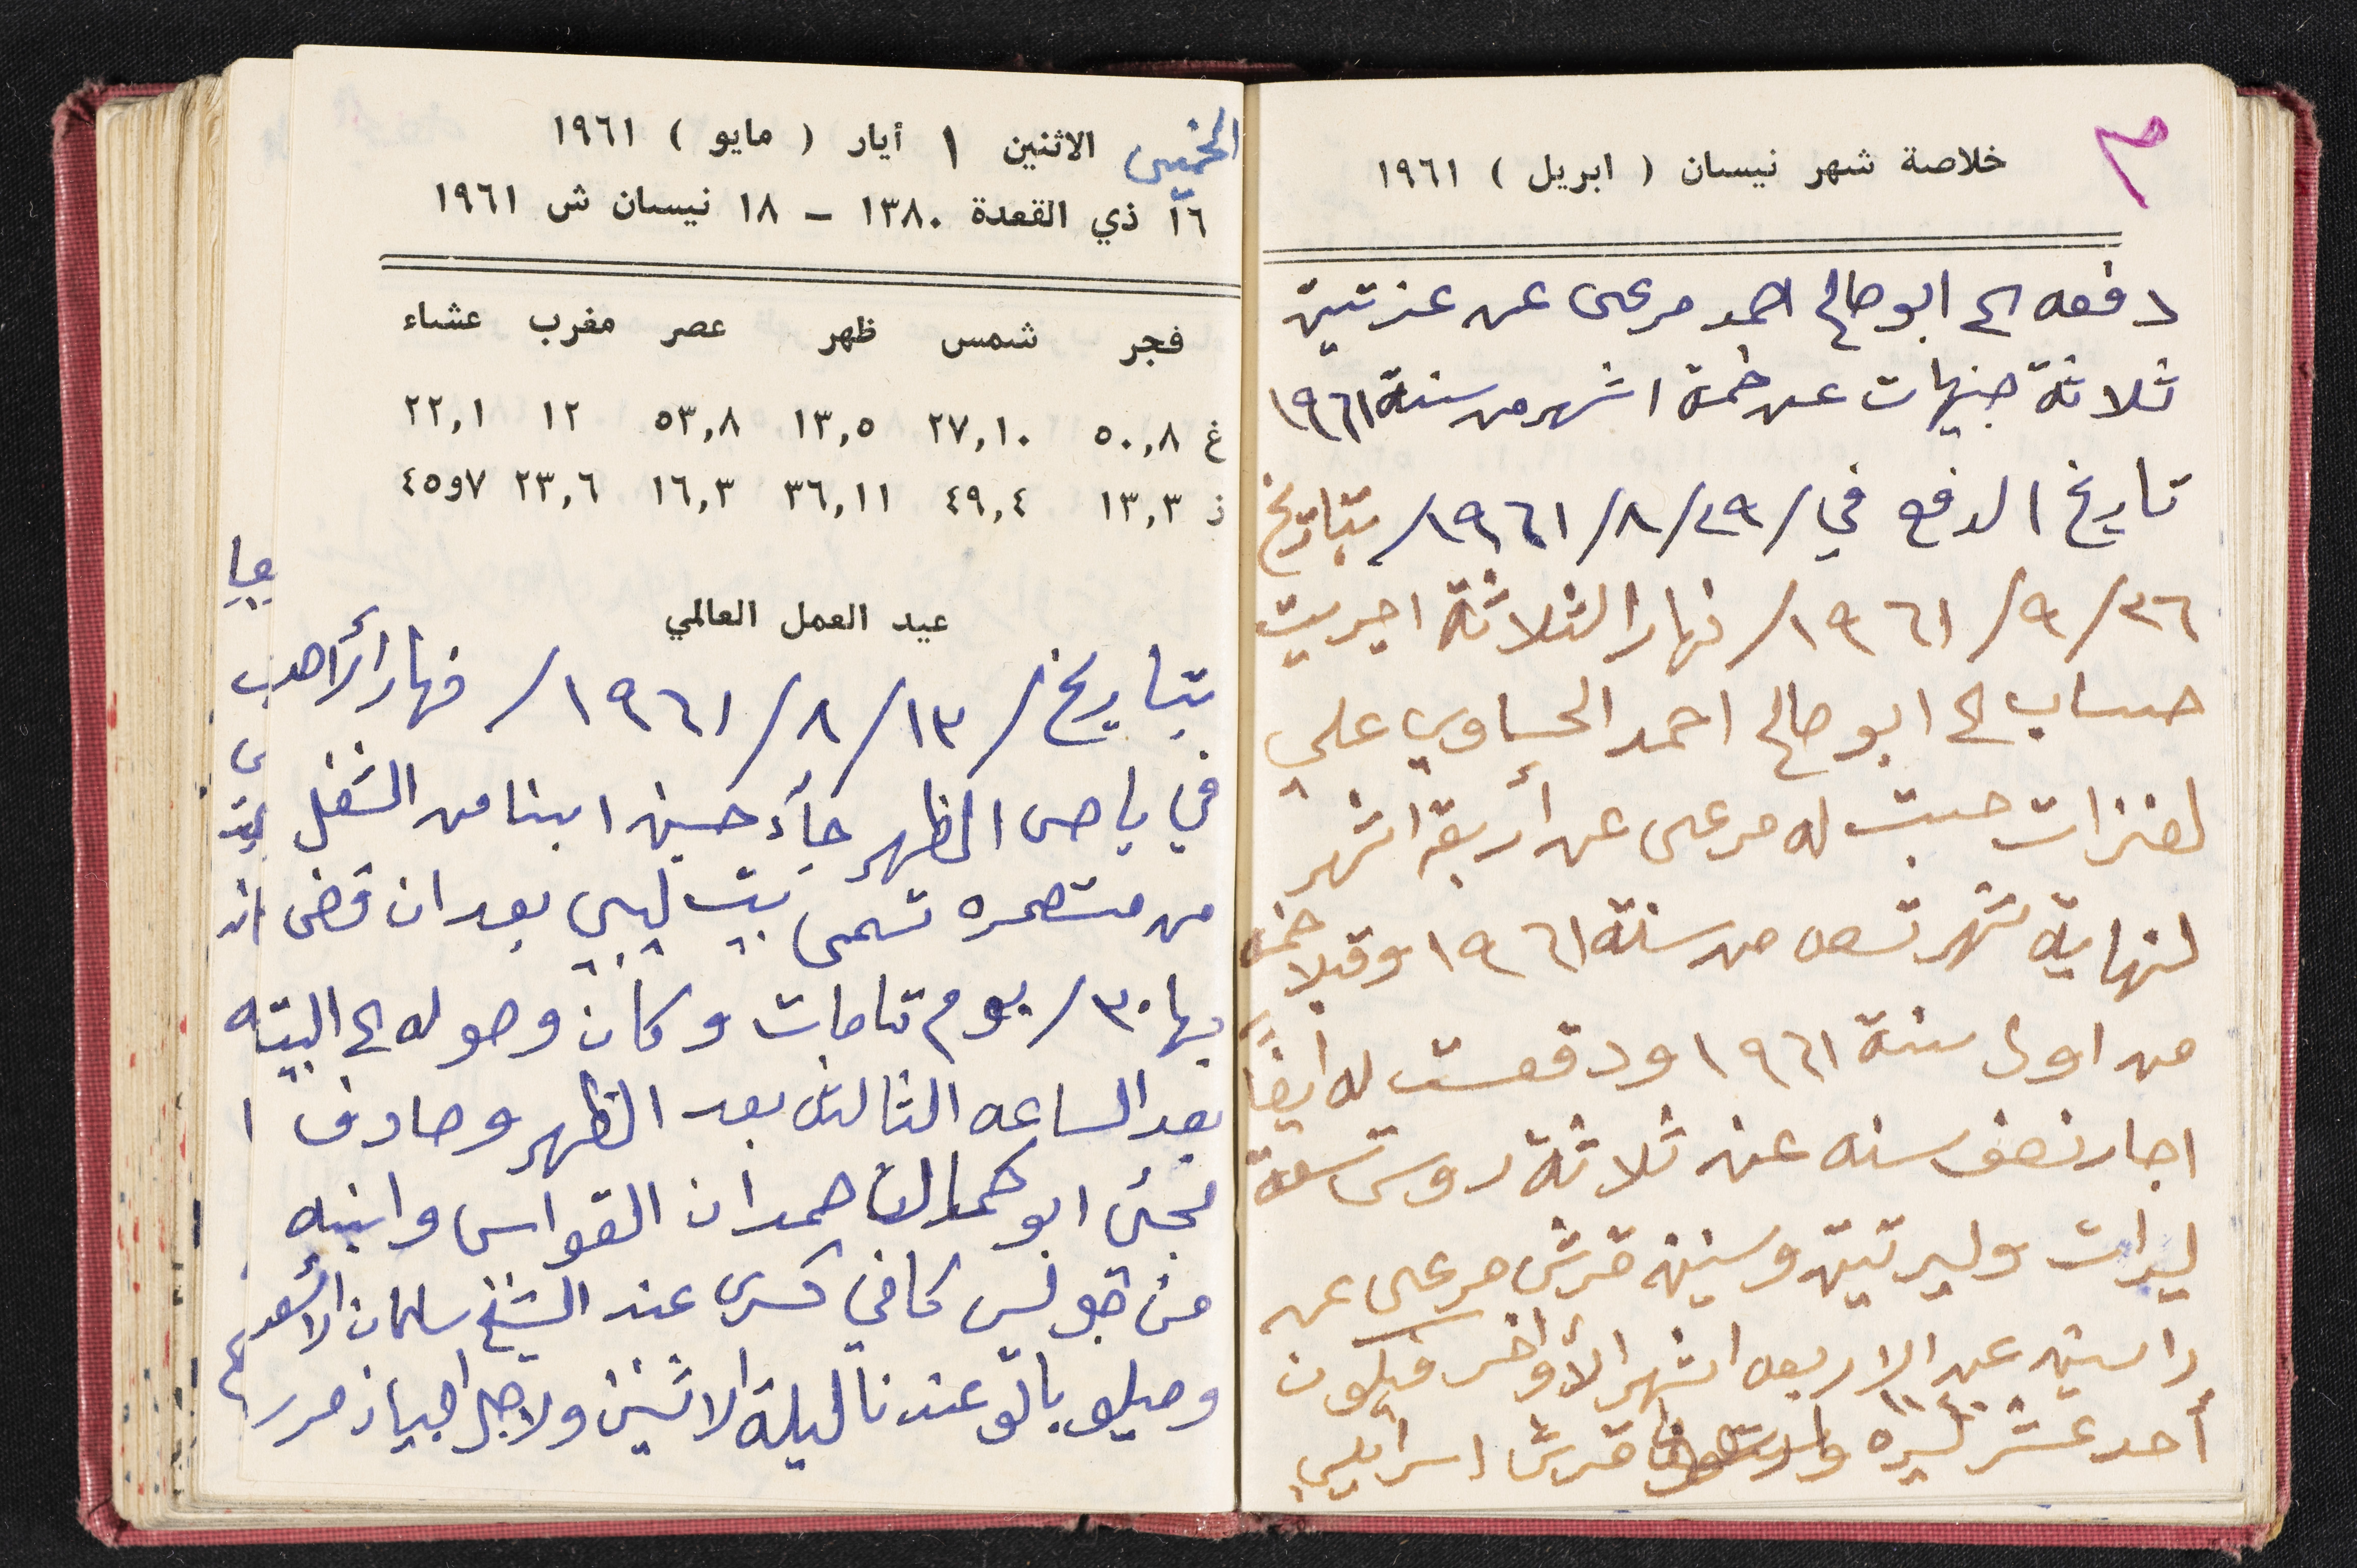 ٣
خلاصة شهر نيسان ( ابريل ) ١٩٦١
دفعه الى ابو صالح احمد مرعى عن عنزتين
ثلاثة جنيهات عن خمسة اشهر من سنة ١٩٦١
تاريخ الدفع في /٢٩/٨/١٩٦١/ بتاريخ
٢٦/٩/١٩٦١/ نهار الثلاثة اجريت
حساب الى ابو صالح احمد الحساوي علي
لعنزات حسبت له مرعى عن أربعة اشهر
لنهاية شهر تسعه من سنة ١٩٦١ وقبلا خمسه
من اول سنة ١٩٦١ ودفعت له ايضاً
اجار نصف سنه عن ثلاثة روس تسعة
ليرات وليرتين وستين قرش مرعى عن
راسين عن الاربعه اشهر الأواخر فيكون
أحد عشر ليره قرش اسرايلي
الخميس الاثنين ١ أيار ( مايو ) ١٩٦١
١٦ ذي القعدة ١٣٨٠ – ١٨ نيسان ش ١٩٦١
فجر شمس ظهر عصر مغرب عشاء
غ ٥٠,٨ ٢٧,١٠ ١٣,٥ ٥٣,٨ ١٢ ٢٢,١
ز ١٣,٣ ٤٩,٤ ٣٦,١١ ١٦,٣ ٢٣,٦ ٧و٤٥
عيد العمل العالمي
بتاريخ /١٣/٨/١٩٦١/ نهار الأحد
في الظهر جاء حسين ابننا من الشغل
من مستعمره تسمى بيت بعد ان قضى
بها ٣٠/ يوم تامات وكان وصوله الى البيت
بعد الساعه الثالثه بعد الظهر وصادف
مجئ ابو كمال حمدان القواس وابنه
من جولس كافي كسرى عند الشيخ سلمان الأسعد
وميلو باتو عندنا ليلة الاثنين ولاجل اجياز مرر